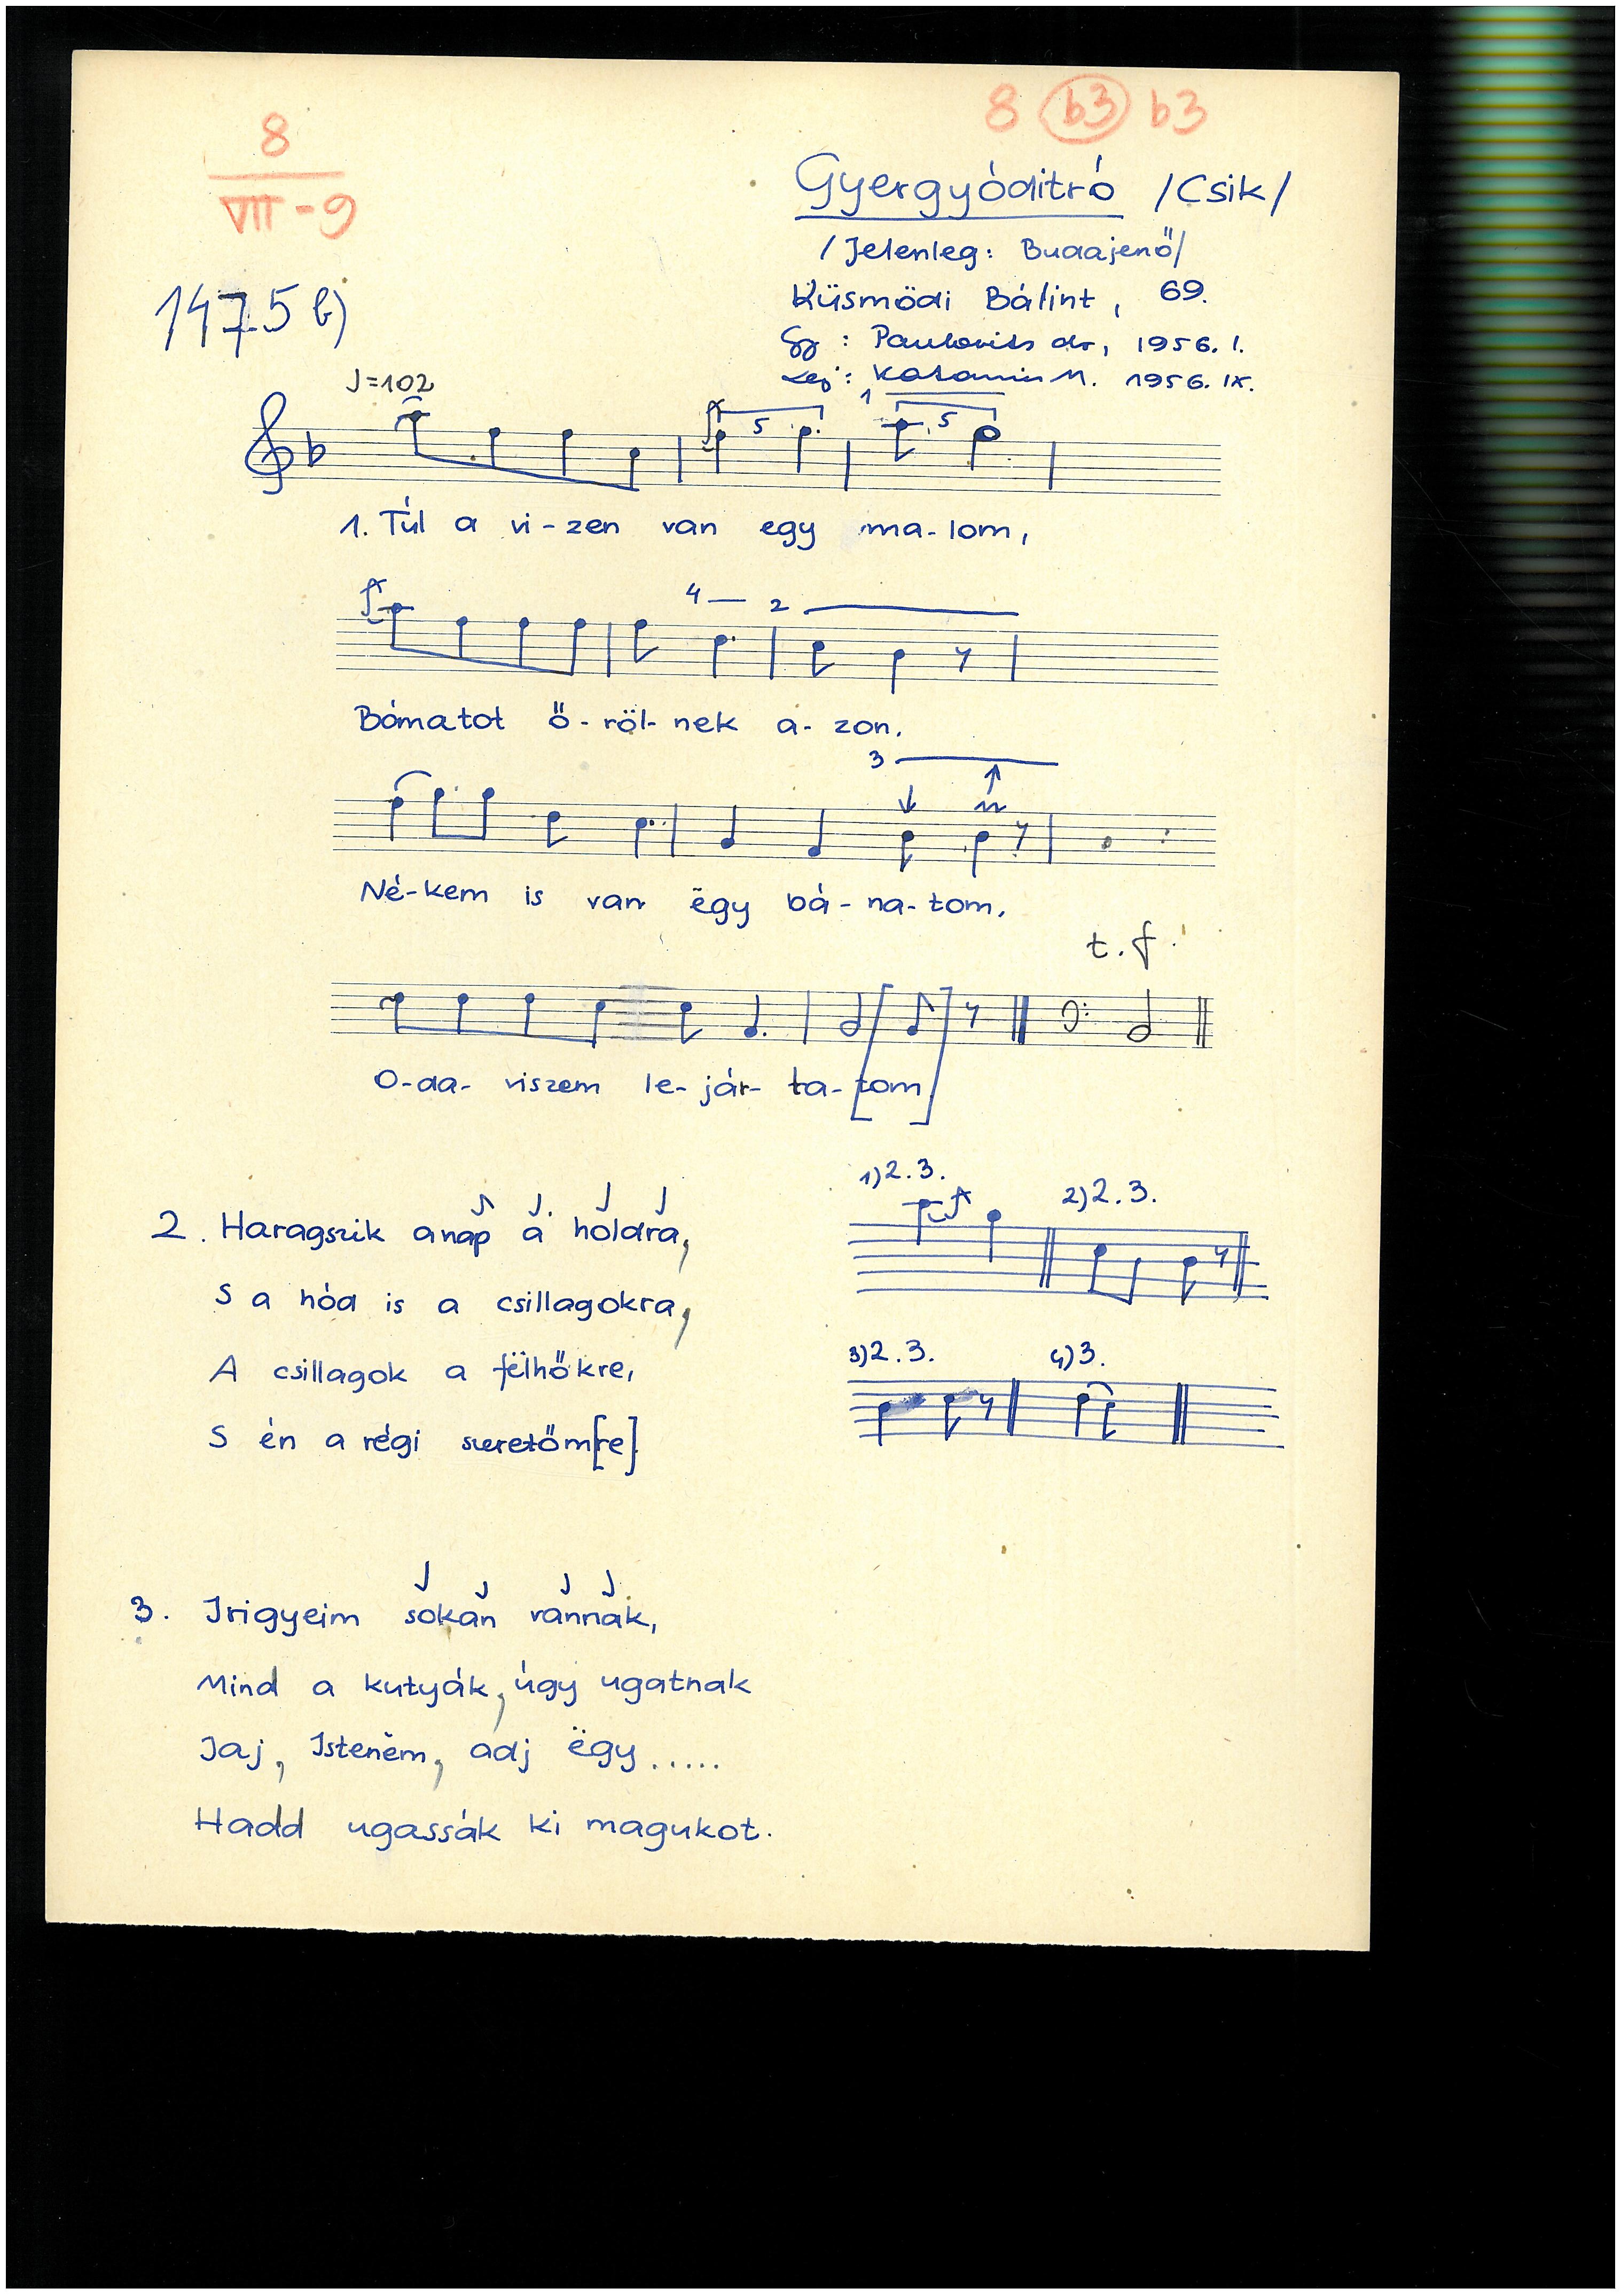 8 b3 b3
8
VII-9
Gyergyóditró /Csik/
/Jelenleg: Budajenő/
Küsmödi Bálint, 69.
1475 b)
Gy: dr, 1956. I.
Lej: M. 1956. IX.
♩=102
1
5 5
1. Túl a vi-zen van egy ma-lom,
4 2
Bómatot ő-röl-nek a-zon.
3
Né-kem is van ëgy bá-na-tom,
t.f.
O-da- viszem le-jár-ta-[tom]
1)2.3.
2)2.3.
2. Haragszik a nap a holdra,
S a hód is a csillagokra,
3)2.3.
4)3.
A csillagok a fëlhőkre,
S én a régi szeretőm[re]
3. Irigyeim sokan vannak,
Mind a kutyák, úgy ugatnak
Jaj, Istenëm, adj ëgy.....
Hadd ugassák ki magukot.